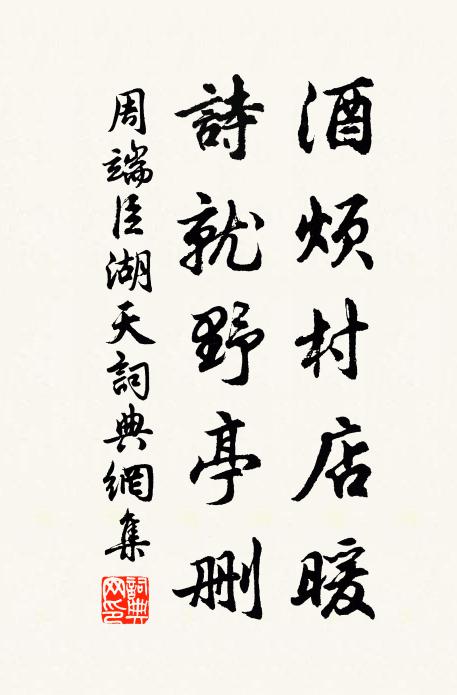 酒煩村店暖
詩就野亭刪
周端臣湖天詞典網集
詞典網印